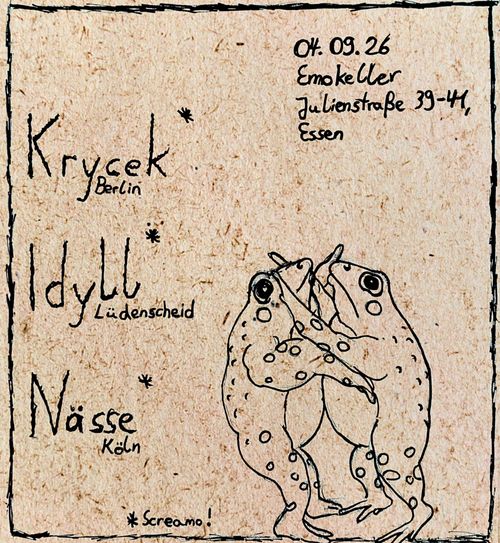 04.09.26
Emokeller
Julienstraße 39-41,
Essen
Krycek*
Berlin
Idyll*
Lüdenscheid
Nässe*
Köln
*Screamo!